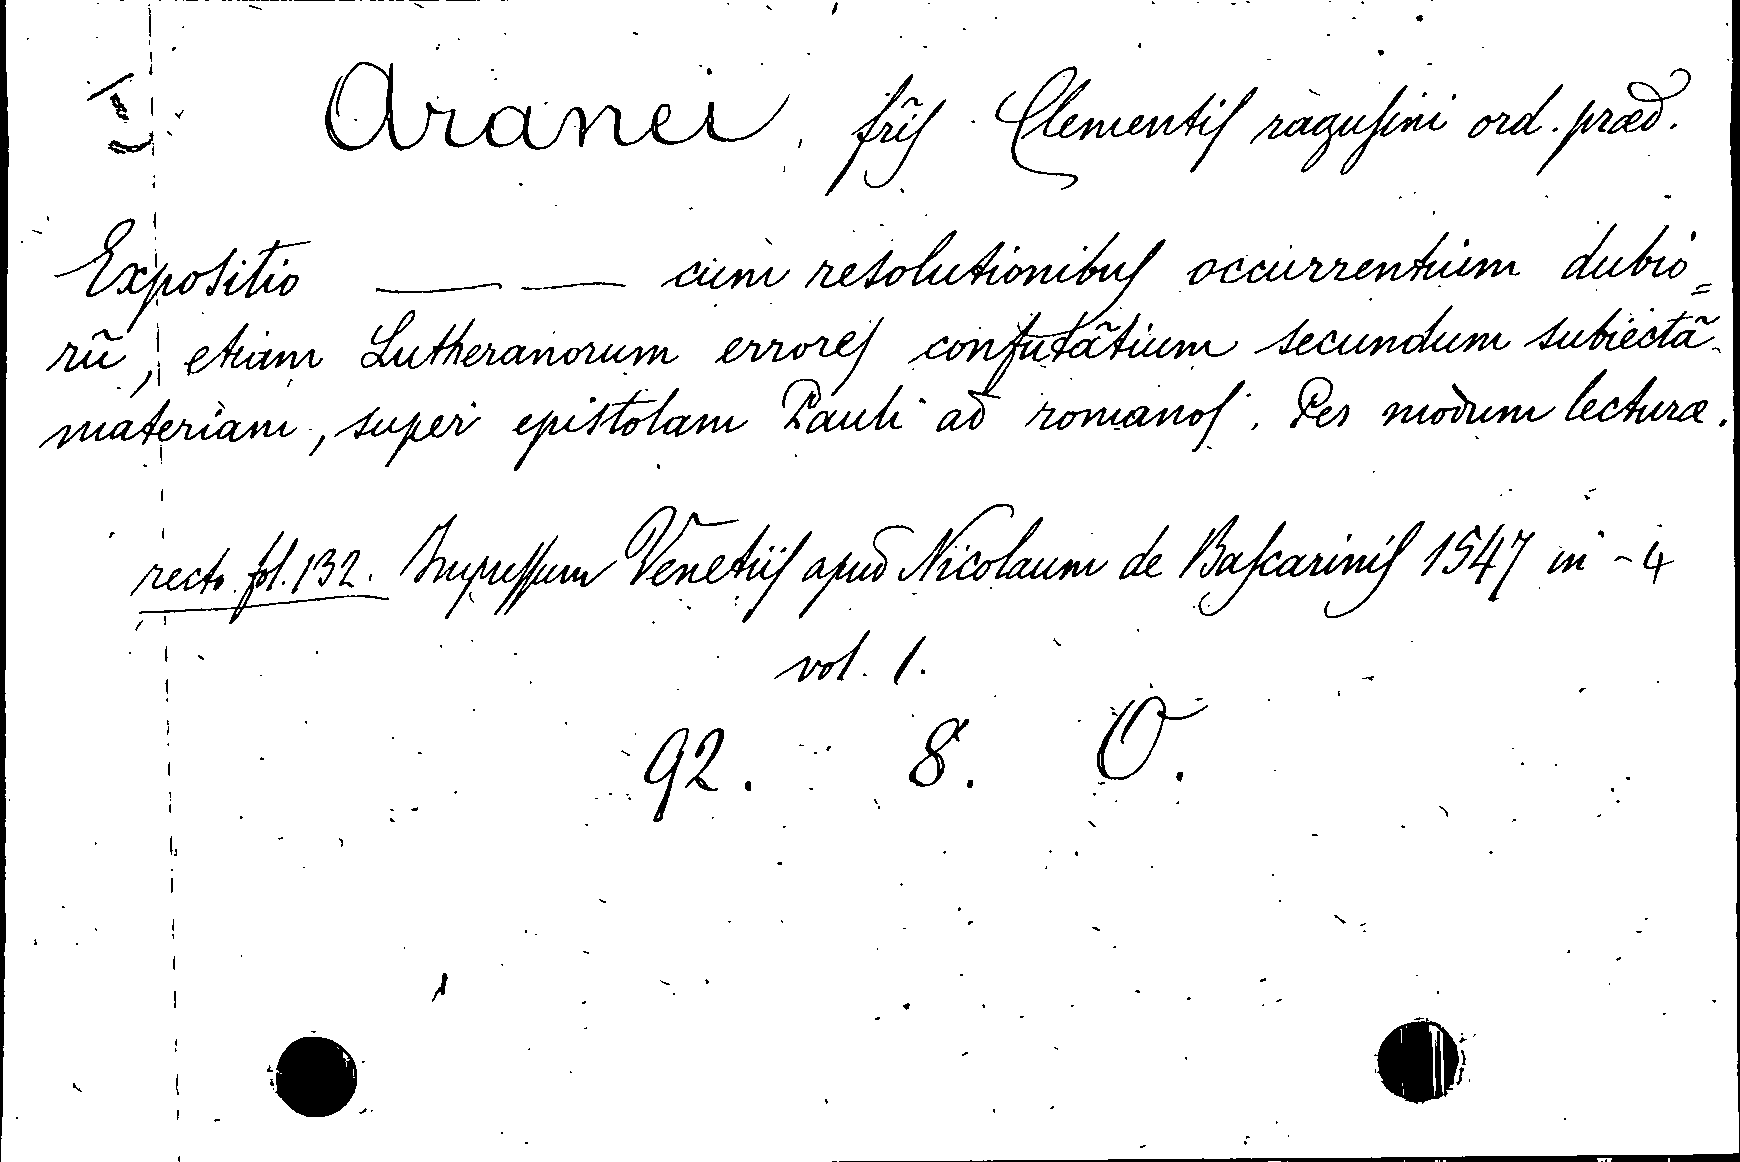 Aranei, frĩs Clementis ragusini ord. præd.
Expositio — — cum resolutionibus occurrentium dubio=
rũ, etiam Lutheranorum errores confutãtium secundum subiectã
materiam, super epistolam Pauli ad romanos. Per modum lecturæ.
recto fol. 132. Impressum Venetiis apud Nicolaum de Bascarinis 1547 in-4
vol. 1.
92. 8. O.